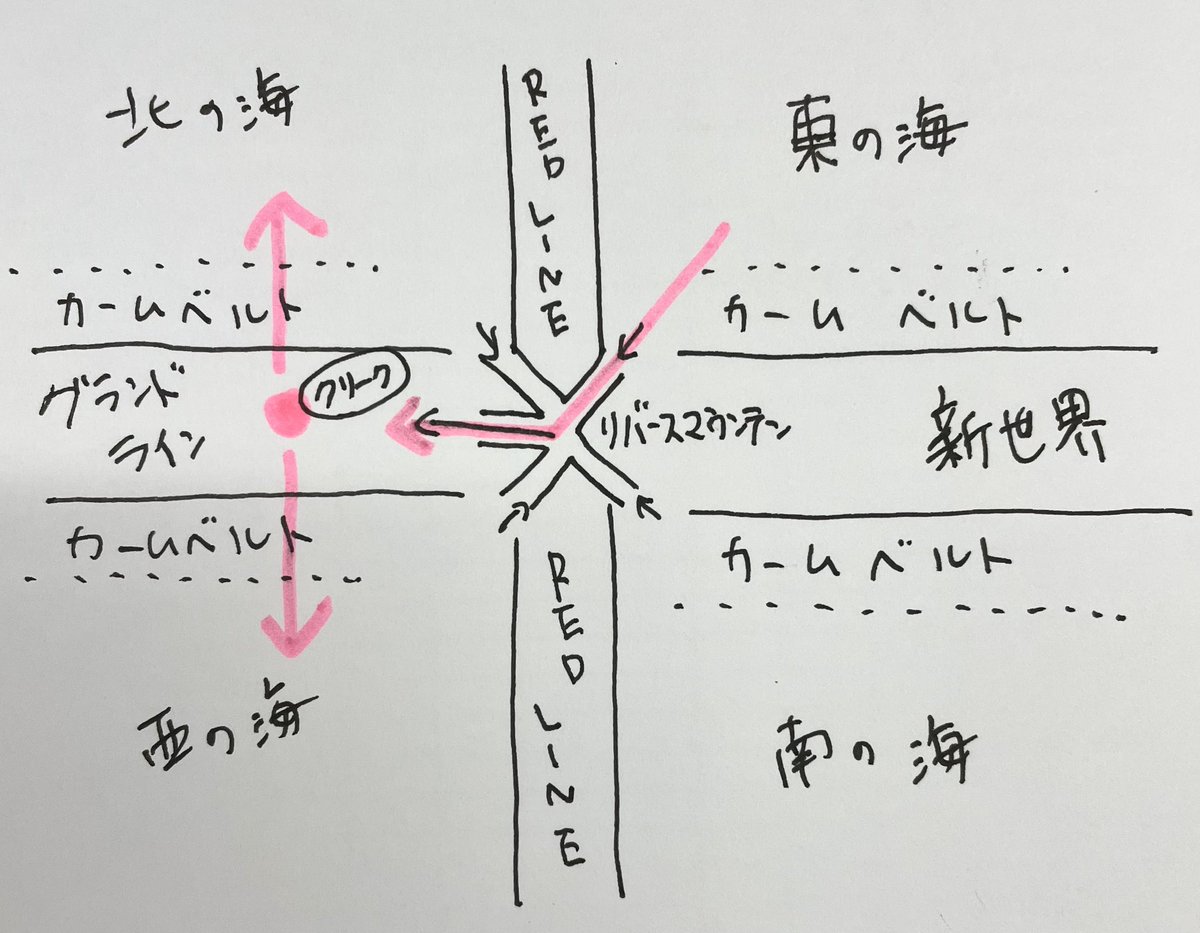 北の海
RED LINE
東の海
カームベルト
カームベルト
グランド
ライン
クリーク
リバースマウンテン
新世界
カームベルト
カームベルト
RED LINE
西の海
南の海